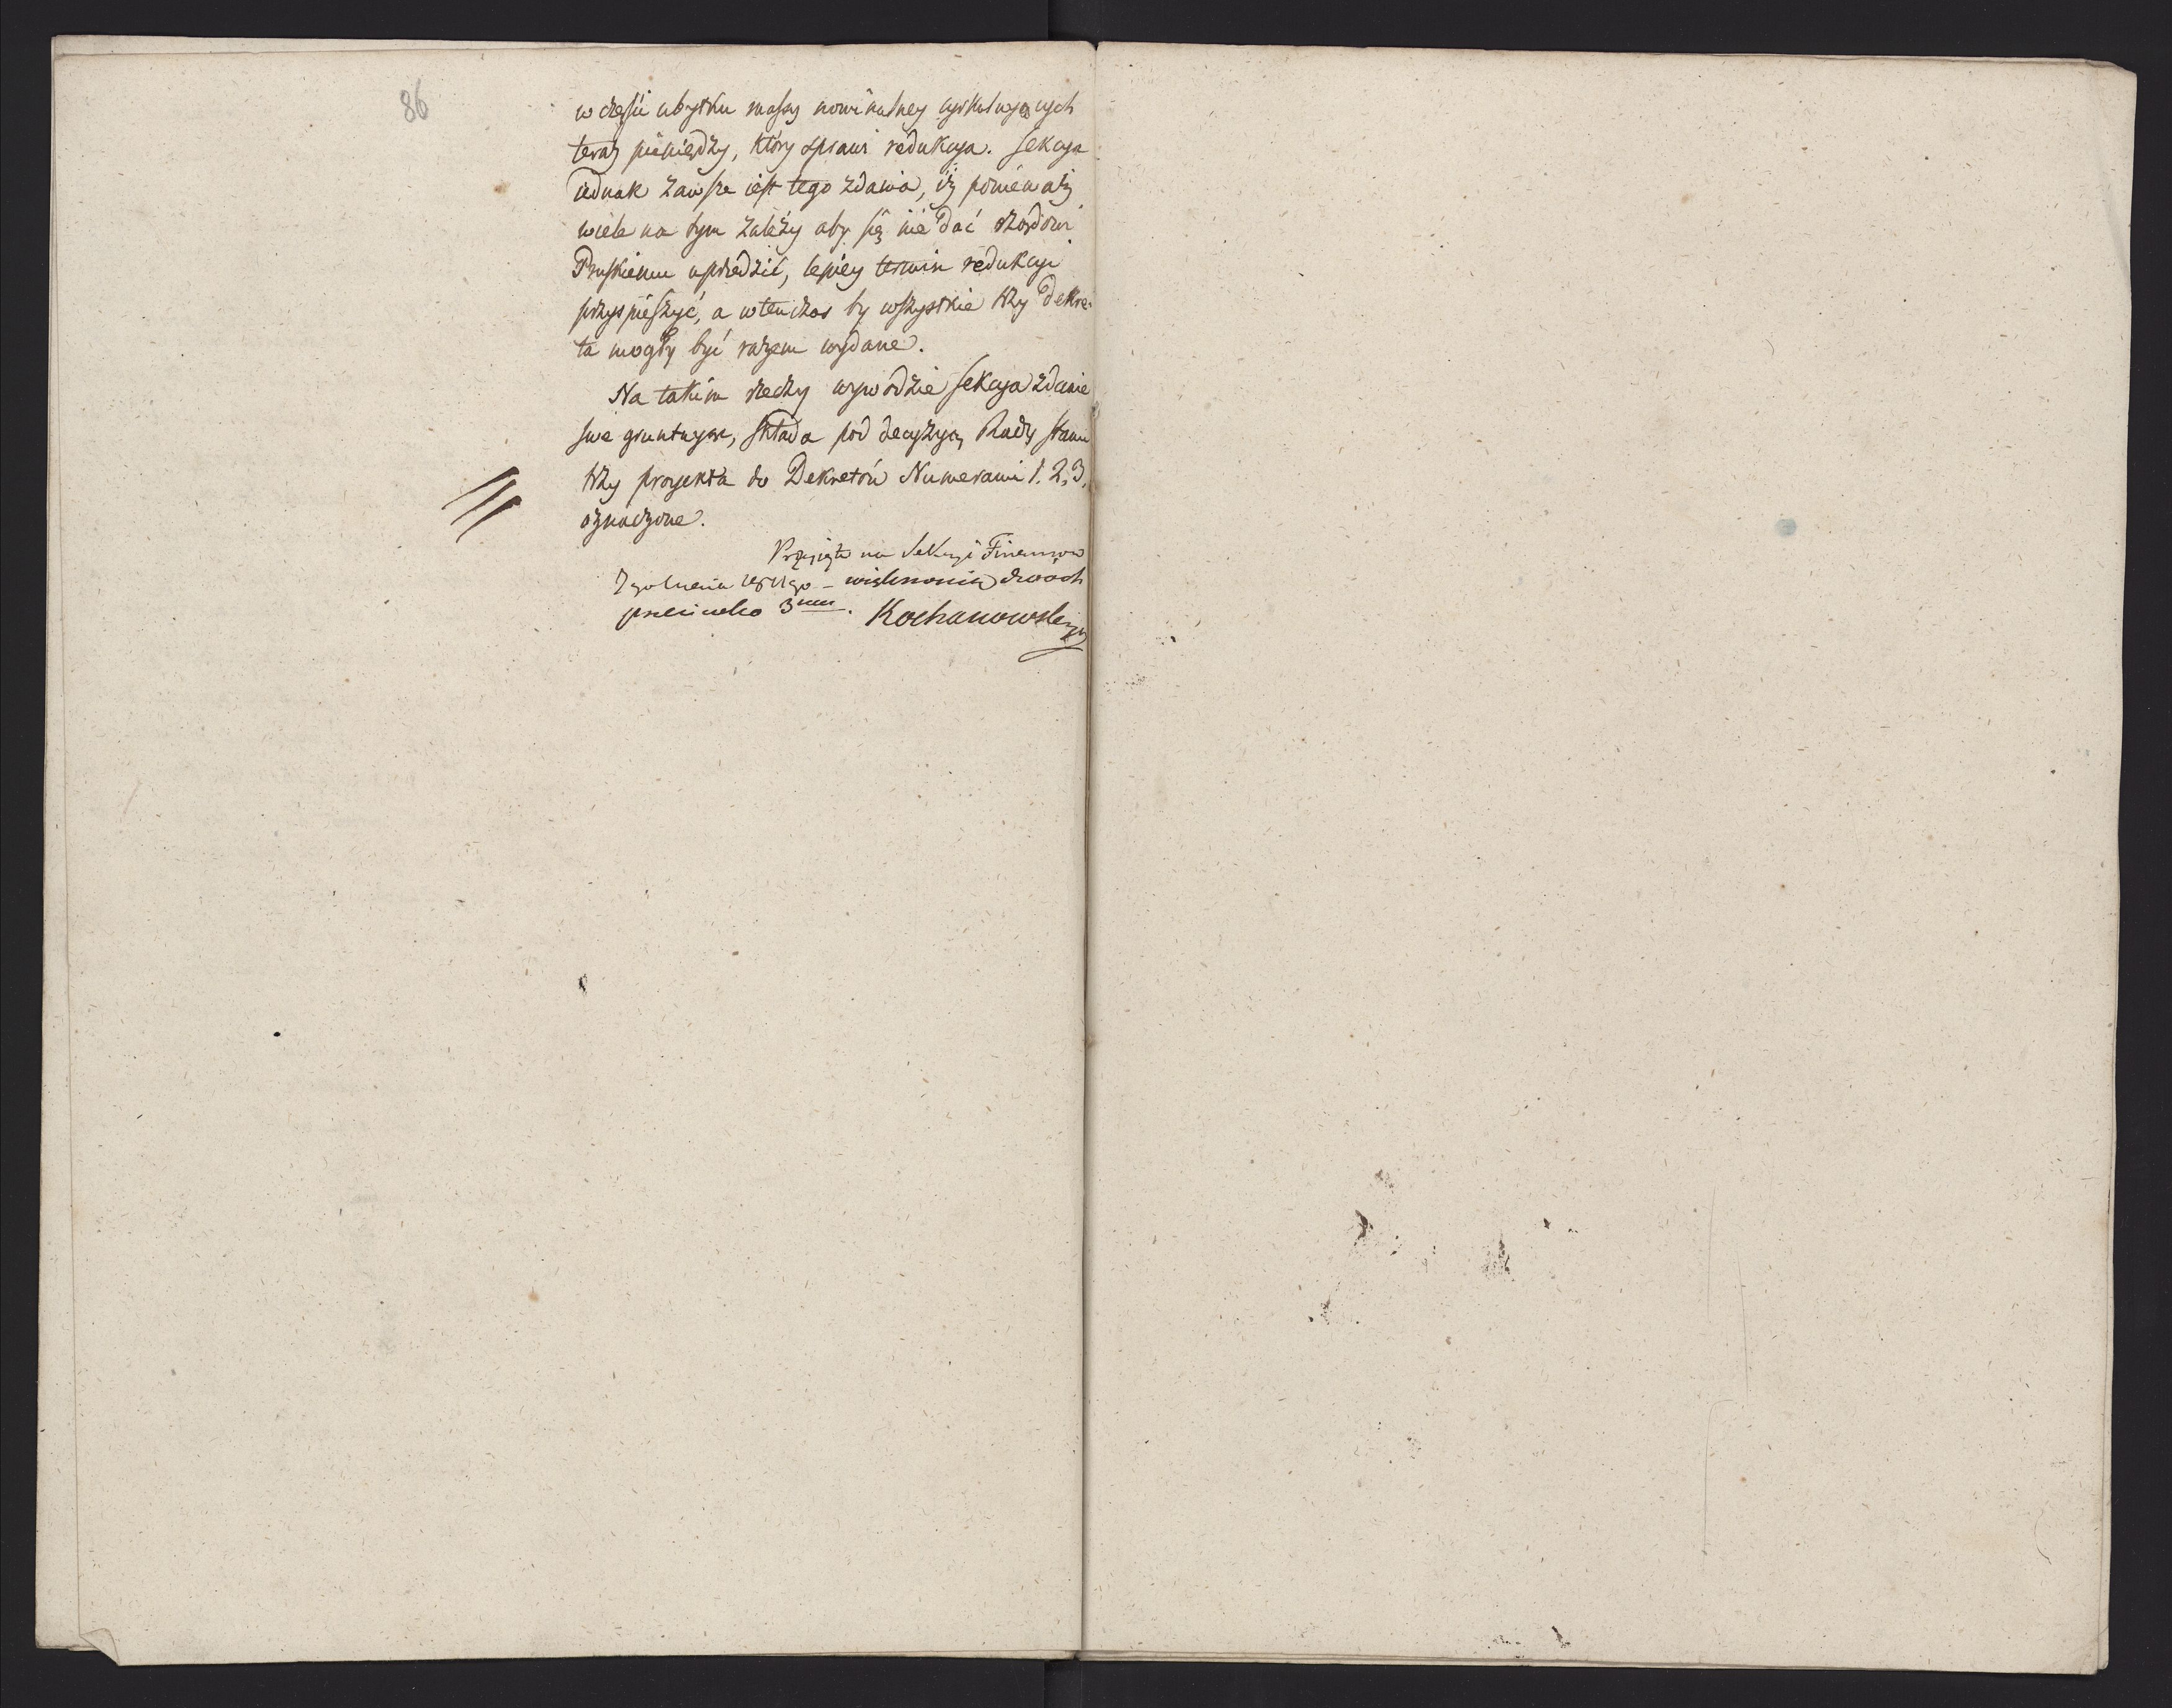 86
w części ubytku massy nominalney cyrkuluiących
teraz pieniędzy, który sprawi redukcya. Sekcya
iednak zawsze iest tego zdania, iż ponieważ
wiele na tym zależy aby się nie dać rządowi
Pruskiemu uprzedzić, lepiey termin redukcyi
przyspieszyć, a wtenczas by wszystkie trzy dekre-
ta mogły być razem wydane.
Na takim rzeczy wywodzie Sekcya zdanie
swe gruntuiąc, składa pod decyzyą Rady Stanu
trzy proiekta do Dekretów Numerami 1. 2. 3.
oznaczone.
Przyięto na Sekcyi Finansow
większością dwóch
przeciwko 3<sup>m</sup>. Kochanowski